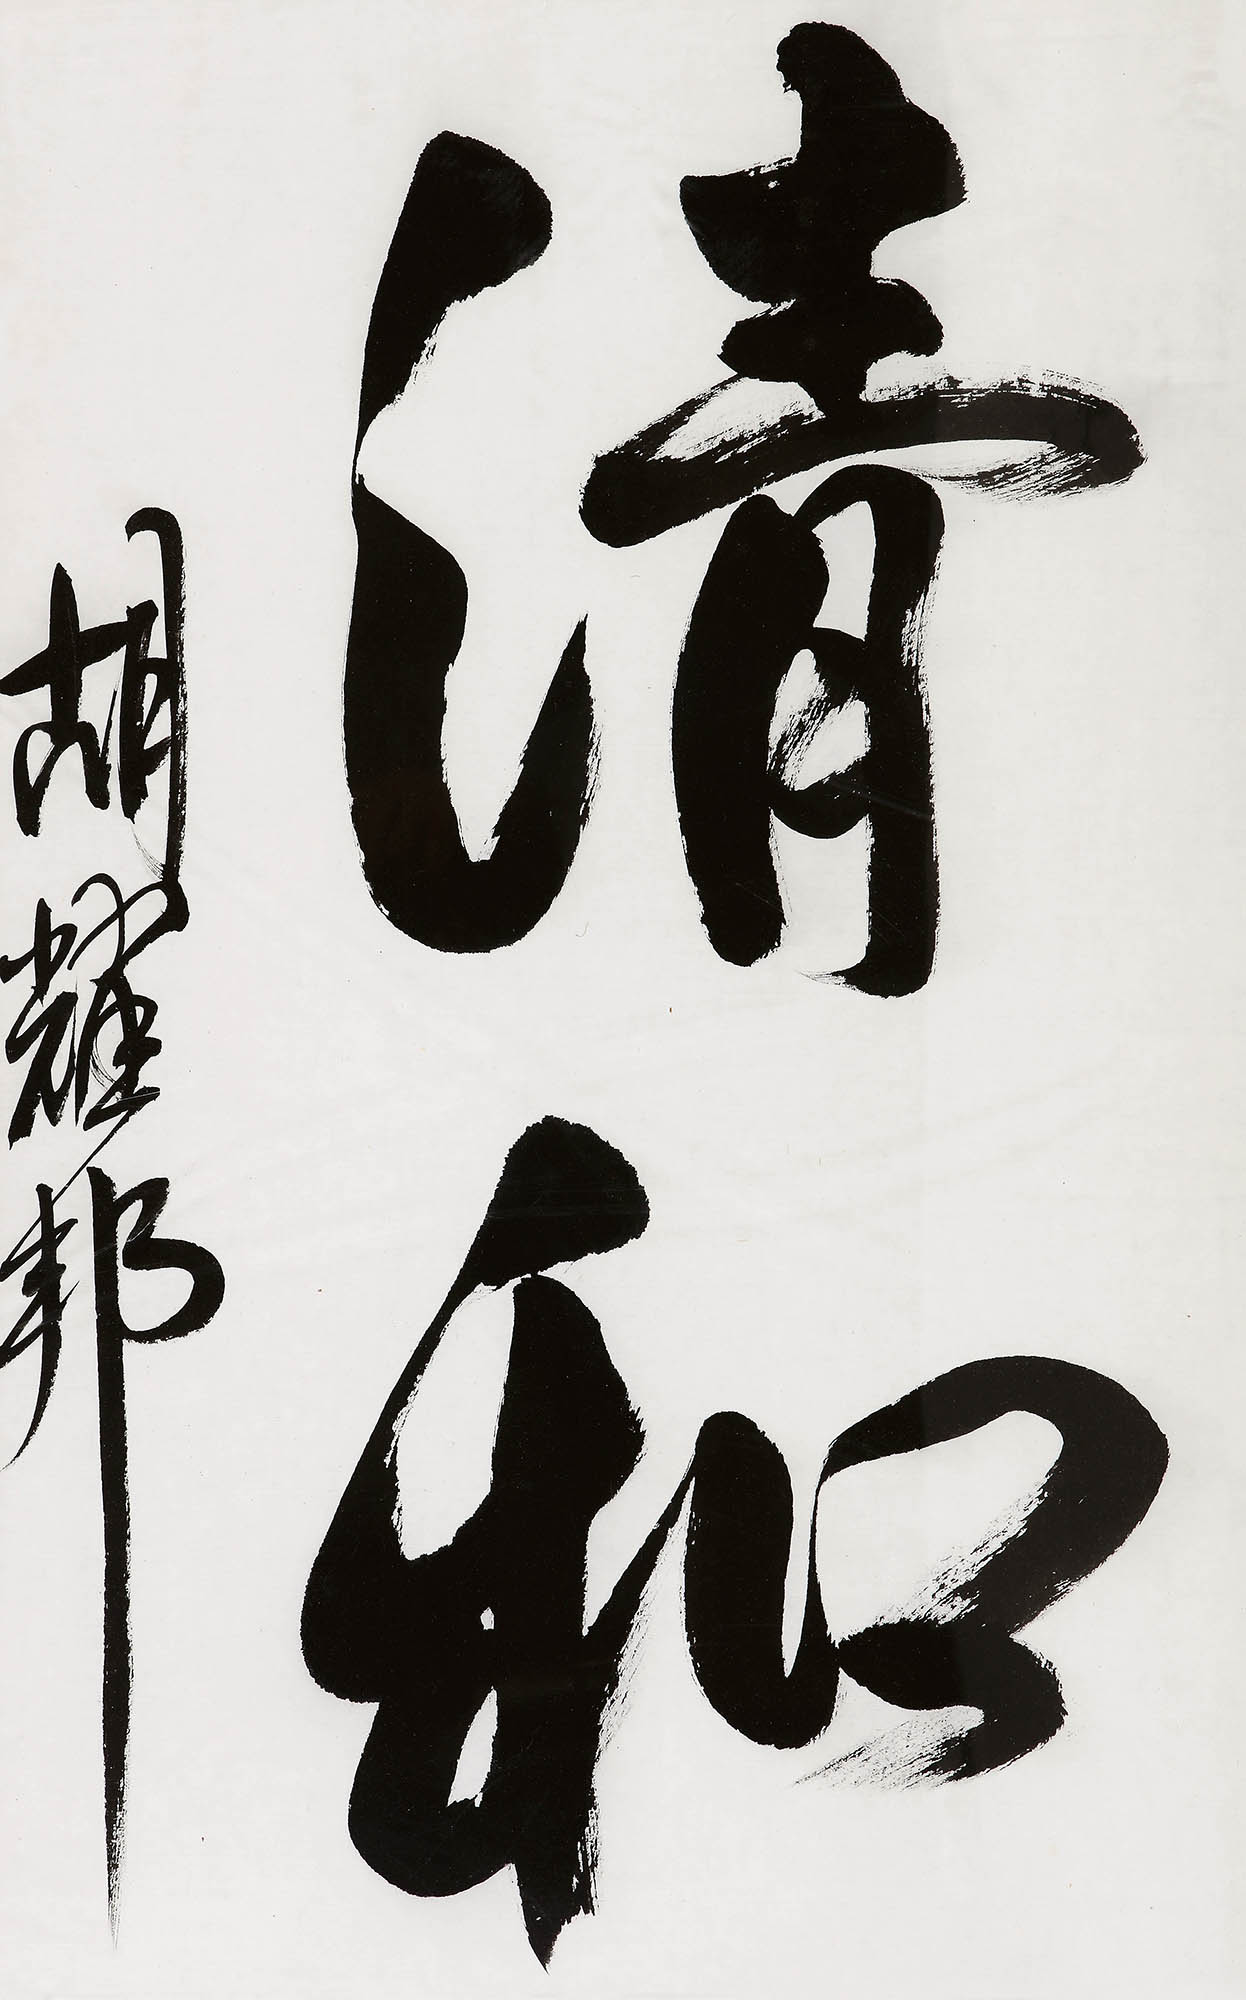 清和
胡耀邦